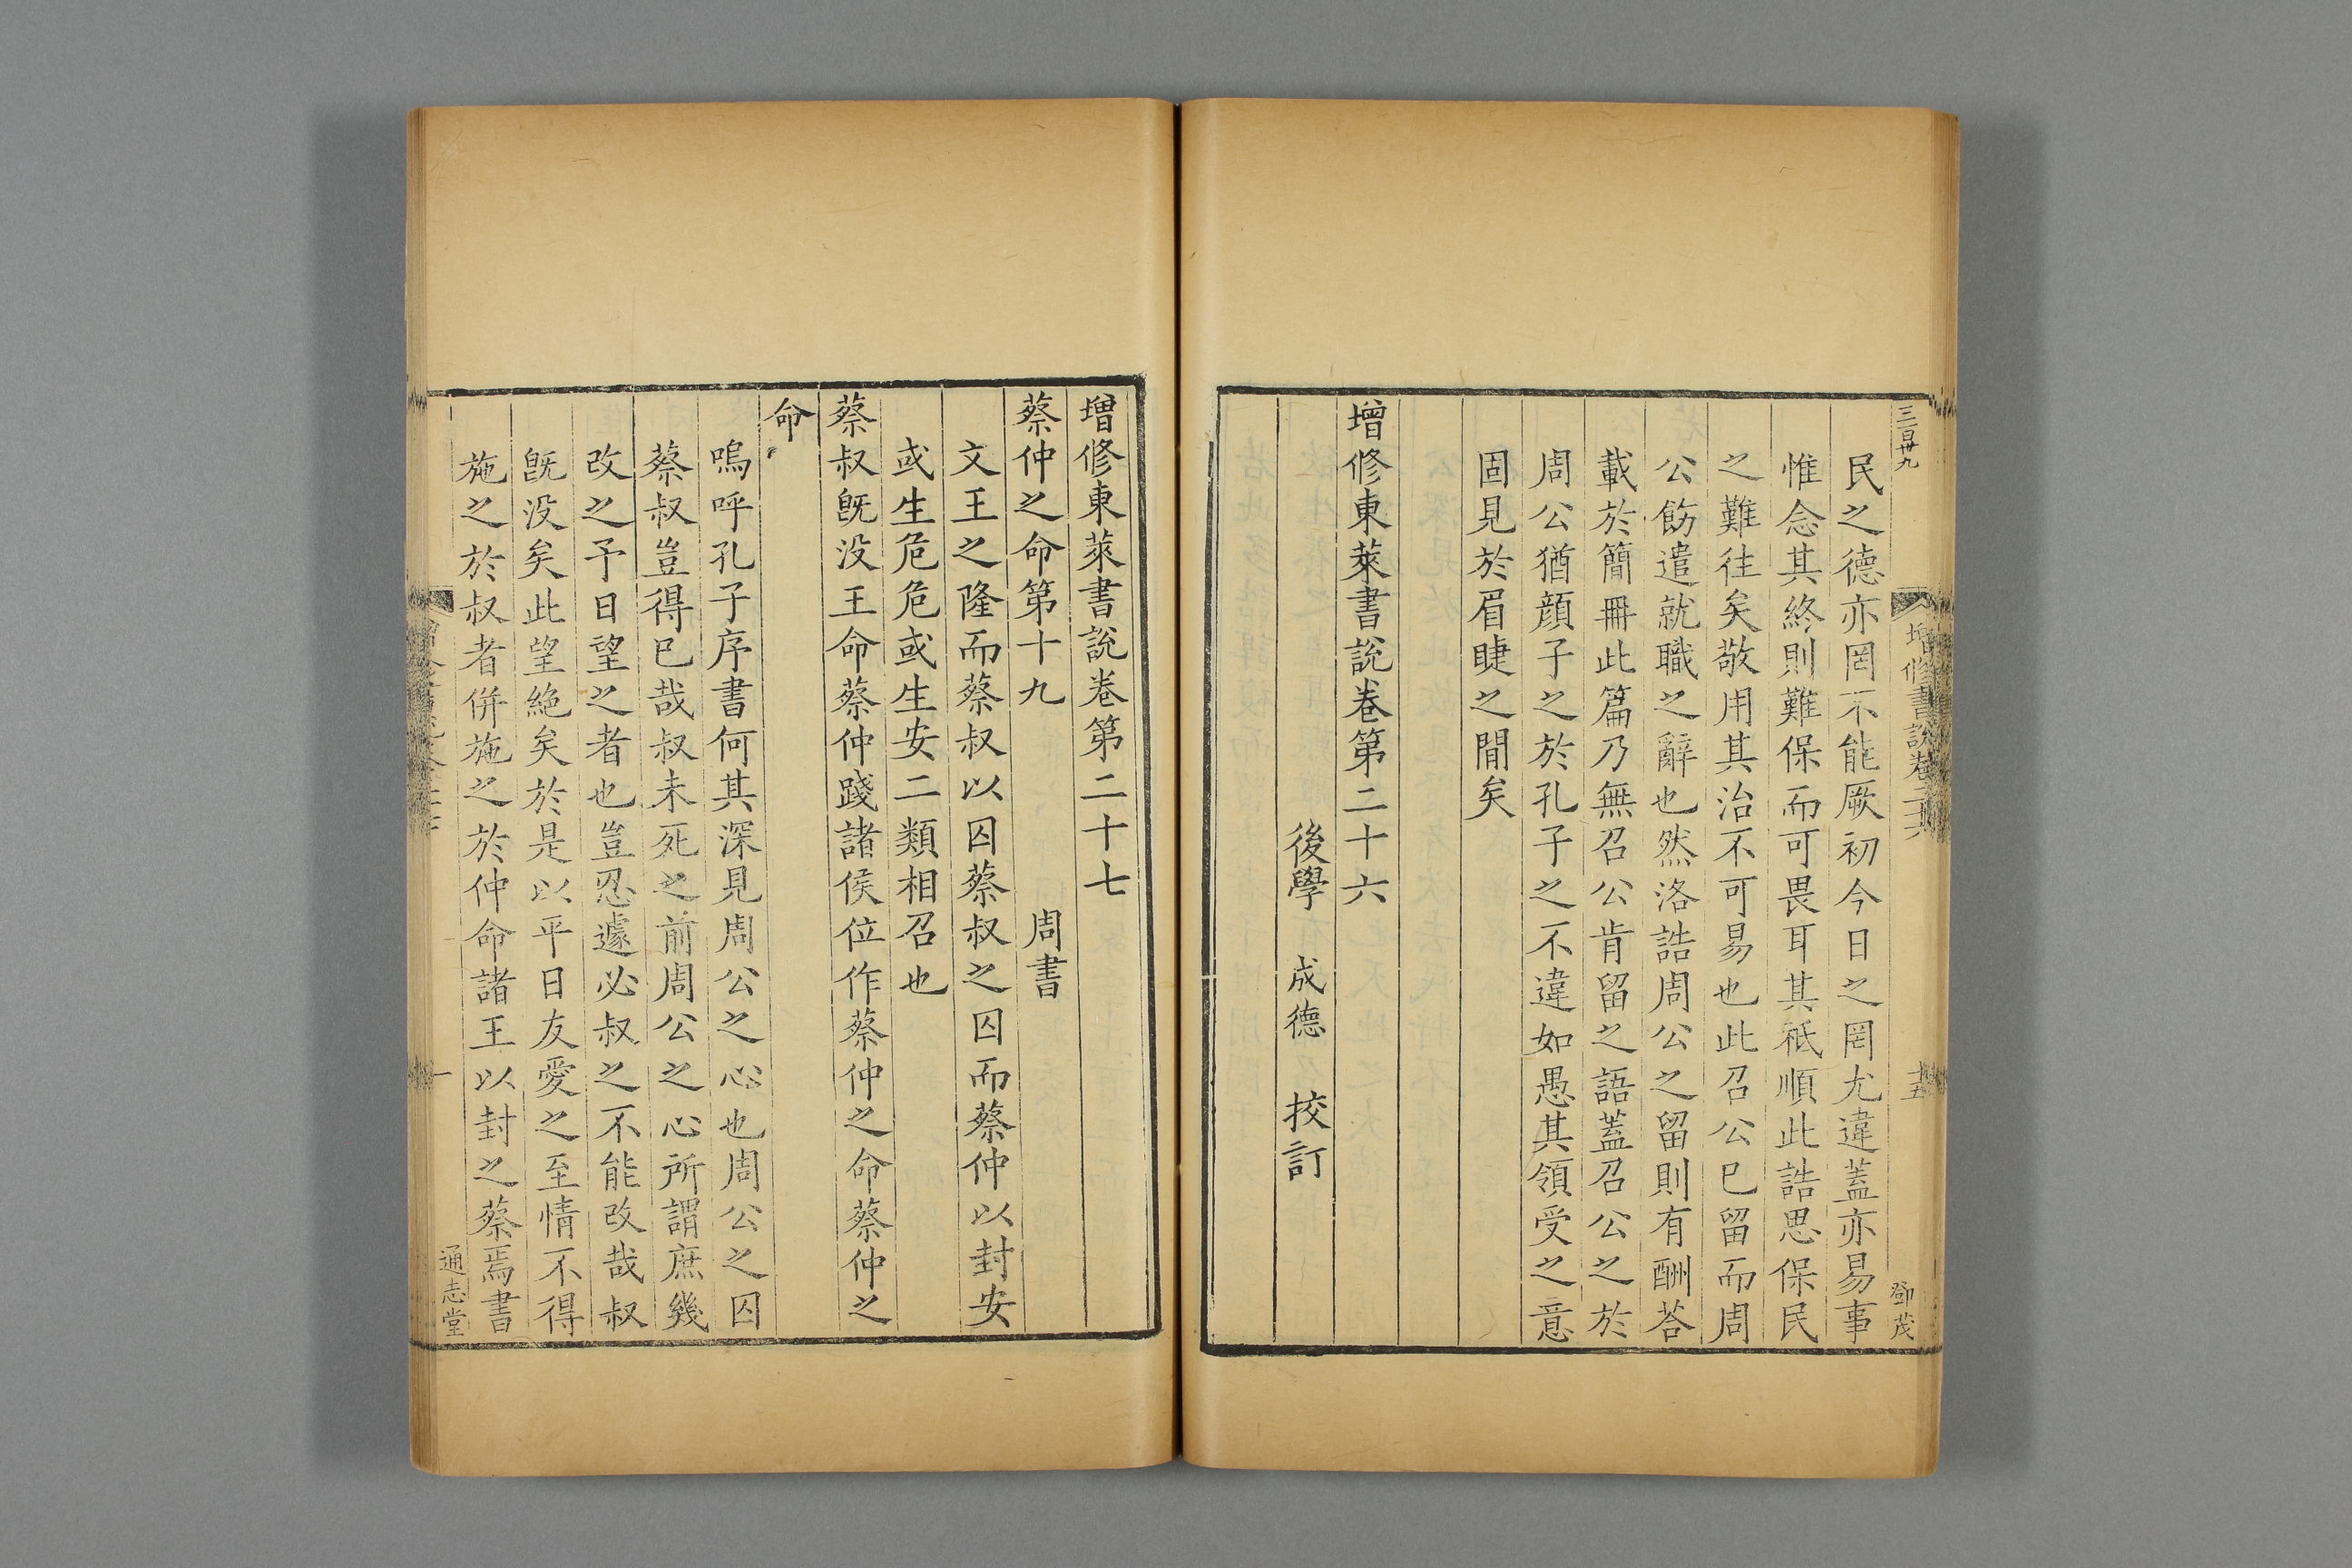 三百卅九
增修書說卷二十六
十五
鄧茂
民之德亦罔不能厥初今日之罔尤違蓋亦易事
惟念其終則難保而可畏耳其祗順此誥思保民
之難往矣敬用其治不可易也此召公巳留而周
公飭遣就職之辭也然洛誥周公之留則有酬荅
載於簡冊此篇乃無召公肯留之語蓋召公之於
周公猶顏子之於孔子之不違如愚其領受之意
固見於眉睫之間矣
增修東萊書說卷第二十六
後學 成德 挍訂
增修東萊書說卷第二十七
蔡仲之命第十九 周書
文王之隆而蔡叔以囚蔡叔之囚而蔡仲以封安
或生危危或生安二類相召也
蔡叔旣没王命蔡仲踐諸侯位作蔡仲之命蔡仲之
命
嗚呼孔子序書何其深見周公之心也周公之囚
蔡叔豈得巳哉叔未死之前周公之心所謂庶幾
改之予日望之者也豈忍遽必叔之不能改哉叔
旣没矣此望絶矣於是以平日友愛之至情不得
施之於叔者併施之於仲命諸王以封之蔡焉書
一
通志堂